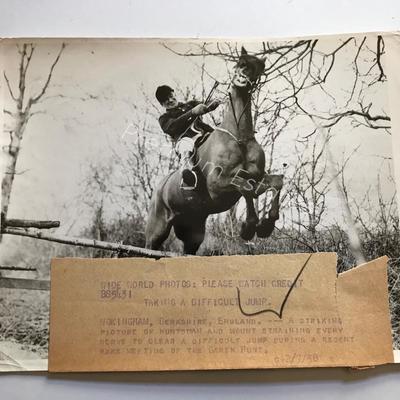 Premium Estate
WIDE WORLD PHOTOS: PLEASE WATCH CREDIT
TAKING A DIFFICULT JUMP.
WOKINGHAM, BERKSHIRE, ENGLAND. --- A STRIKING
PICTURE OF HUNTSMAN AND MOUNT STRAINING EVERY
NERVE TO CLEAR A DIFFICULT JUMP DURING A RECENT
MEETING OF THE GARTH HUNT.